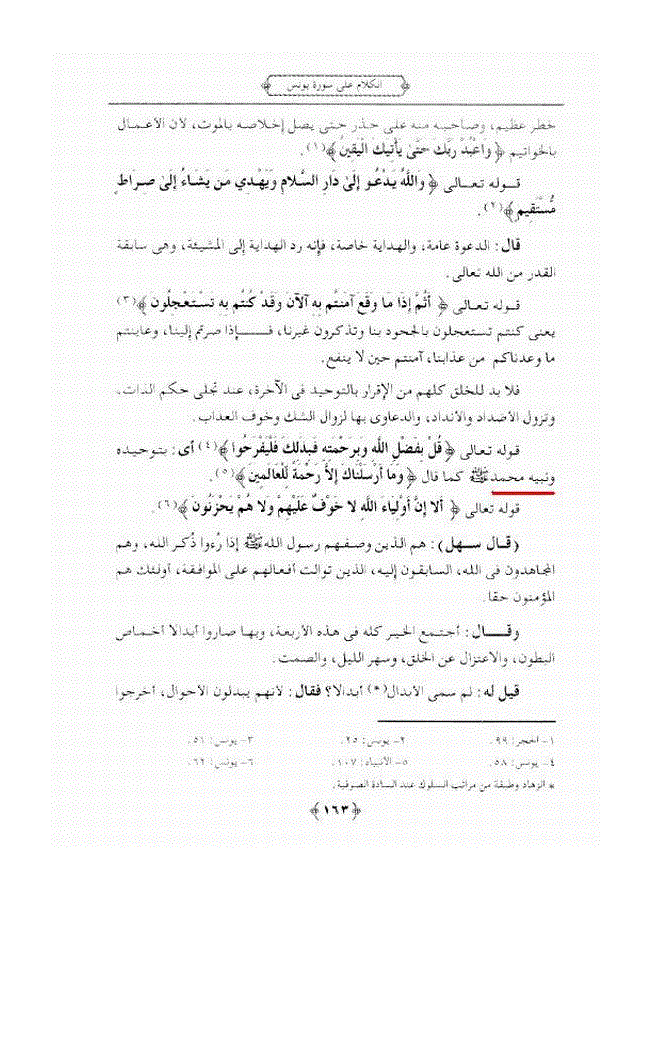 الكلام على سورة يونس
خطر عظيم، وصاحبه منه على حذر حتى يصل إخلاصه بالموت، لأن الأعمال
بالخواتيم ﴿ وَاعْبُدْ رَبَّكَ حَتَّىٰ يَأْتِيَكَ الْيَقِينُ ﴾(١).
قـولـه تـعـالـى ﴿ وَاللَّهُ يَدْعُو إِلَىٰ دَارِ السَّلَامِ وَيَهْدِي مَن يَشَاءُ إِلَىٰ صِرَاطٍ
مُّسْتَقِيمٍ ﴾(٢).
قال: الدعوة عامة، والهداية خاصة، فإنه رد الهداية إلى المشيئة، وهى سابقة
القدر من الله تعالى.
قـولـه تعالى ﴿ أَثُمَّ إِذَا مَا وَقَعَ آمَنتُم بِهِ آلْآنَ وَقَدْ كُنتُم بِهِ تَسْتَعْجِلُونَ ﴾(٣)
يعنى كنتم تستعجلون بالجحود بنا وتذكرون غيرنا، فـــإذا صرتم إلينا، وعاينتم
ما وعدناكم من عذابنا، آمنتم حين لا ينفع.
فلا بد للخلق كلهم من الإقرار بالتوحيد فى الآخرة، عند تجلى حكم الذات،
وتزول الأضداد والأنداد، والدعاوى بها لزوال الشك وخوف العذاب.
قـولـه تعالى ﴿ قُلْ بِفَضْلِ اللَّهِ وَبِرَحْمَتِهِ فَبِذَلِكَ فَلْيَفْرَحُوا ﴾(٤) أى: بتوحيده
ونبيه محمد ﷺ كما قال ﴿ وَمَا أَرْسَلْنَاكَ إِلَّا رَحْمَةً لِّلْعَالَمِينَ ﴾(٥).
قوله تعالى ﴿ أَلَا إِنَّ أَوْلِيَاءَ اللَّهِ لَا خَوْفٌ عَلَيْهِمْ وَلَا هُمْ يَحْزَنُونَ ﴾(٦).
(قـال سـهل): هم الذين وصفهم رسول الله ﷺ إذا رُءوا ذُكر الله، وهم
المجاهدون فى الله، السابقون إليه، الذين توالت أفعالهم على الموافقة، أولئك هم
المؤمنون حقا.
وقــال: أجتمع الخير كله فى هذه الأربعة، وبها صاروا أبدالا أخماص
البطون، والاعتزال عن الخلق، وسهر الليل، والصمت.
قيل له: لم سمى الأبدال(*) أبدالا؟ فقال: لأنهم يبدلون الأحوال، أخرجوا
١- الحجر: ٩٩. ٢- يونس: ٢٥. ٣- يونس: ٥١.
٤- يونس: ٥٨. ٥- الأنبياء: ١٠٧. ٦- يونس: ٦٢.
* الزهاد وطبقة من مراتب السلوك عند السادة الصوفية.
﴿١٦٣﴾